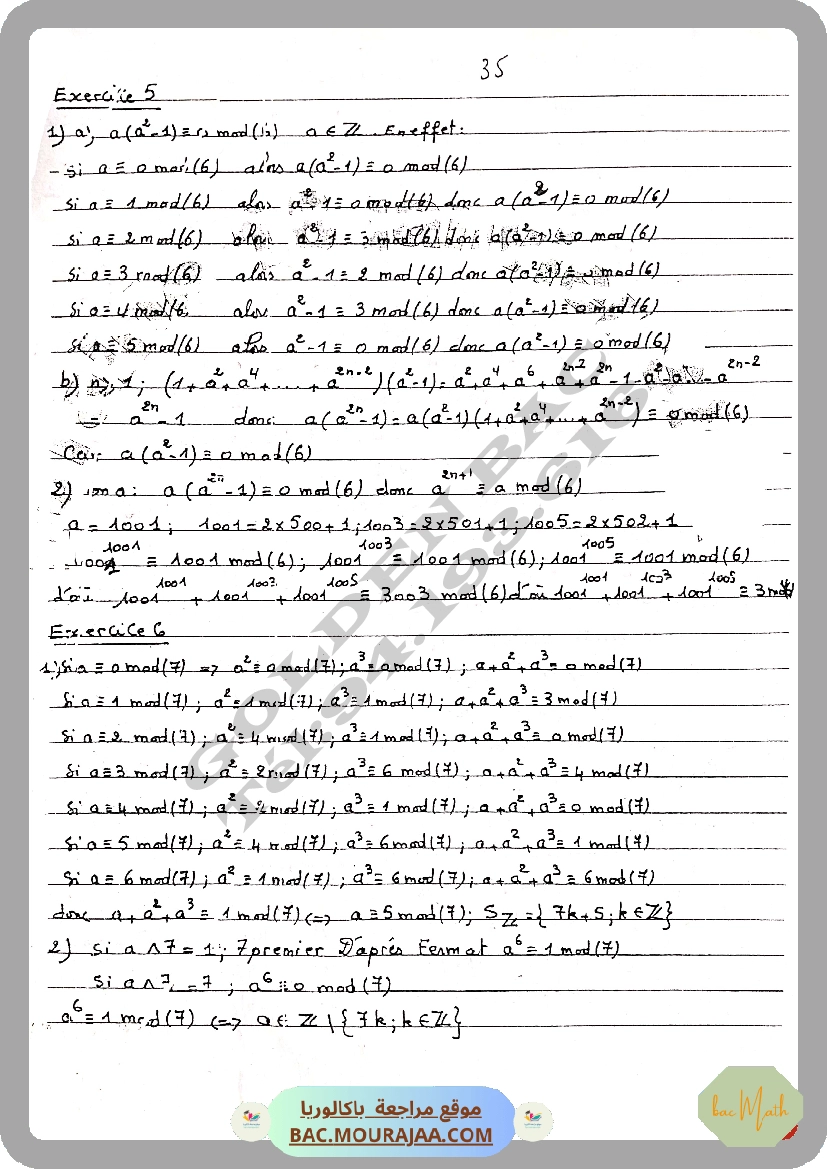 35
Exercice 5
1) a) a(a²-1) ≡ 0 mod(6) a ∈ ℤ . En effet :
- Si a ≡ 0 mod(6) alors a(a²-1) ≡ 0 mod(6)
Si a ≡ 1 mod(6) alors a²-1 ≡ 0 mod(6) donc a(a²-1) ≡ 0 mod(6)
Si a ≡ 2 mod(6) alors a²-1 ≡ 3 mod(6) donc a(a²-1) ≡ 0 mod(6)
Si a ≡ 3 mod(6) alors a²-1 ≡ 2 mod(6) donc a(a²-1) ≡ 0 mod(6)
Si a ≡ 4 mod(6 alors a²-1 ≡ 3 mod(6) donc a(a²-1) ≡ 0 mod(6)
Si a ≡ 5 mod(6) alors a²-1 ≡ 0 mod(6) donc a(a²-1) ≡ 0 mod(6)
b) n ≥ 1 ; (1+a²+a⁴+....+a²ⁿ⁻²)(a²-1) = a²+a⁴+a⁶+a²ⁿ⁻²+a²ⁿ-1-a²-a⁴..-a²ⁿ⁻²
= a²ⁿ-1 donc a(a²ⁿ-1) = a(a²-1)(1+a²+a⁴+...+a²ⁿ⁻²) ≡ 0 mod(6)
Car a(a²-1) ≡ 0 mod(6)
2) on a : a(a²ⁿ-1) ≡ 0 mod(6) donc a²ⁿ⁺¹ ≡ a mod(6)
a = 1001 ; 1001 = 2×500+1 ; 1003 = 2×501+1 ; 1005 = 2×502+1
1001¹⁰⁰¹ ≡ 1001 mod(6) ; 1001¹⁰⁰³ ≡ 1001 mod(6) ; 1001¹⁰⁰⁵ ≡ 1001 mod(6)
d'où 1001¹⁰⁰¹ + 1001¹⁰⁰³ + 1001¹⁰⁰⁵ ≡ 3003 mod(6) d'où 1001¹⁰⁰¹ + 1001¹⁰⁰³ + 1001¹⁰⁰⁵ ≡ 3 mod
Exercice 6
1) Si a ≡ 0 mod(7) => a² ≡ 0 mod(7) ; a³ ≡ 0 mod(7) ; a+a²+a³ ≡ 0 mod(7)
Si a ≡ 1 mod(7) ; a² ≡ 1 mod(7) ; a³ ≡ 1 mod(7) ; a+a²+a³ ≡ 3 mod(7)
Si a ≡ 2 mod(7) ; a² ≡ 4 mod(7) ; a³ ≡ 1 mod(7) ; a+a²+a³ ≡ 0 mod(7)
Si a ≡ 3 mod(7) ; a² ≡ 2 mod(7) ; a³ ≡ 6 mod(7) ; a+a²+a³ ≡ 4 mod(7)
Si a ≡ 4 mod(7) ; a² ≡ 2 mod(7) ; a³ ≡ 1 mod(7) ; a+a²+a³ ≡ 0 mod(7)
Si a ≡ 5 mod(7) ; a² ≡ 4 mod(7) ; a³ ≡ 6 mod(7) ; a+a²+a³ ≡ 1 mod(7)
Si a ≡ 6 mod(7) ; a² ≡ 1 mod(7) ; a³ ≡ 6 mod(7) ; a+a²+a³ ≡ 6 mod(7)
donc a+a²+a³ ≡ 1 mod(7) <=> a ≡ 5 mod(7) ; Sℤ = {7k+5 ; k ∈ ℤ}
2) Si a ∧ 7 = 1 ; 7 premier D'après Fermat a⁶ ≡ 1 mod(7)
Si a ∧ 7 = 7 ; a⁶ ≡ 0 mod(7)
a⁶ ≡ 1 mod(7) <=> a ∈ ℤ \ {7k ; k ∈ ℤ}
GOLDEN BAC
Tel: 94.193.616
موقع مراجعة باكالوريا
BAC.MOURAJAA.COM
bac Math